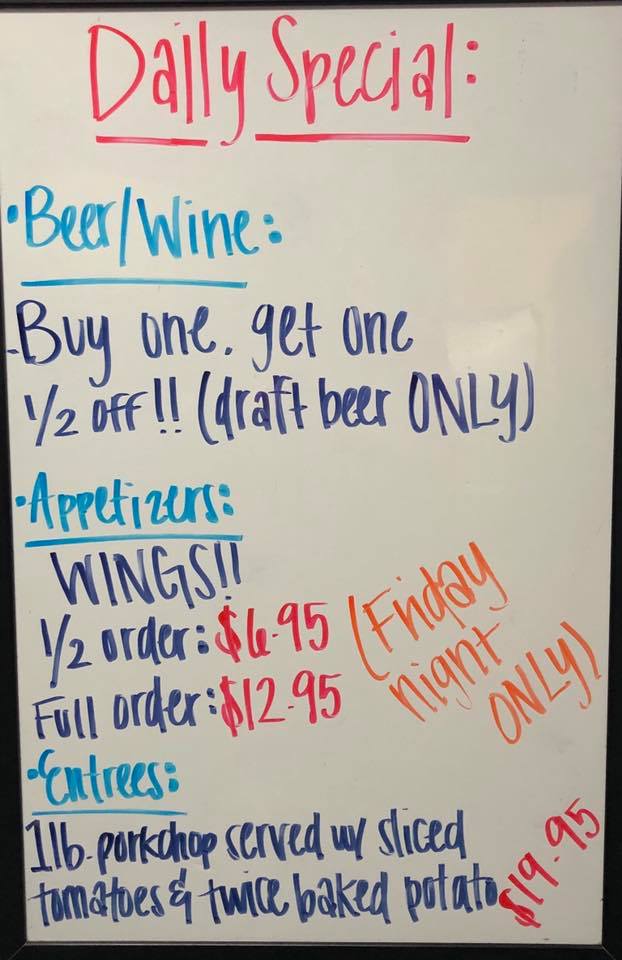 Daily Special:
• Beer/Wine:
- Buy one. get one
1/2 off!! (draft beer ONLY)
• Appetizers:
WINGS!!
1/2 order: $6.95
Full order: $12.95
(Friday
night
ONLY)
• Entrees:
1lb. porkchop served w/ sliced
tomatoes & twice baked potato
$19.95